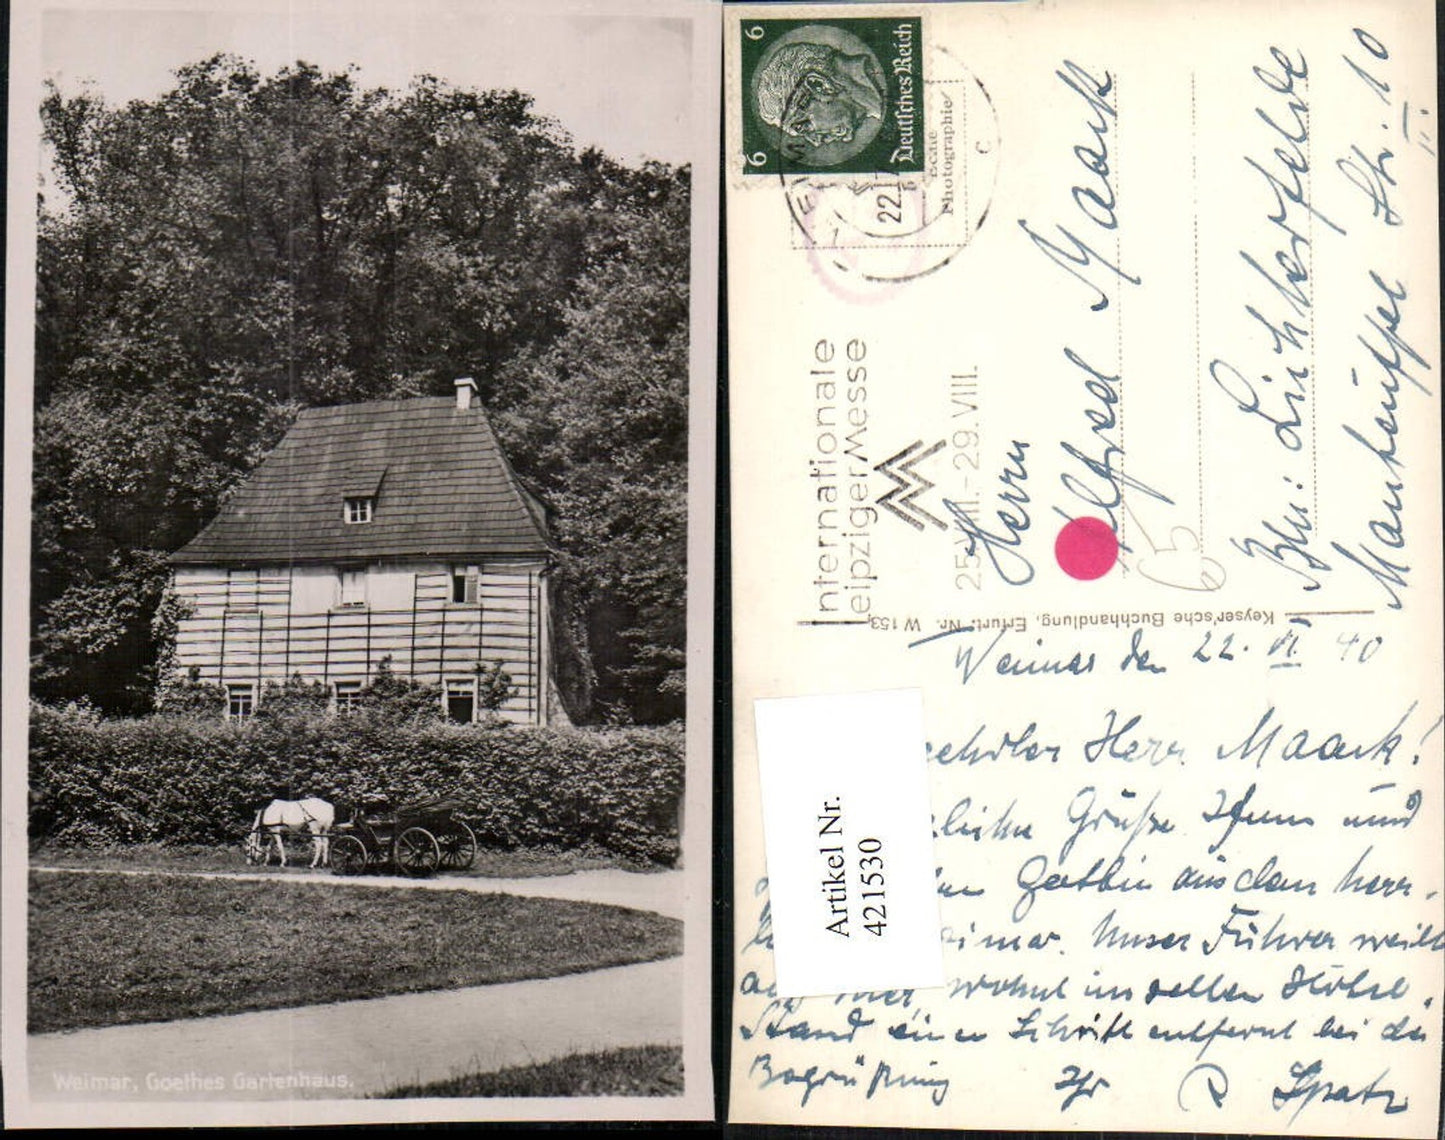 Weimar, Goethes Gartenhaus.
6
6
Deutsches Reich
WEIMAR
22.
c
Echte
Photographie
Internationale
Leipziger Messe
25. VIII. - 29. VIII.
Herrn
Alfred Maack
Bln: Lichterfelde
Manteuffel Str. 10
II.
65
Keyser'sche Buchhandlung, Erfurt. Nr. W 153
Weimar den 22. VI. 40
Herr Maack!
Grüße Ihnen und
Gattin aus dem herr-
Unser Führer weilt
hier wohnt im selben Hotel.
Stand einen Schritt entfernt bei der
Begrüßung Ihr P Spatz
Artikel Nr.
421530